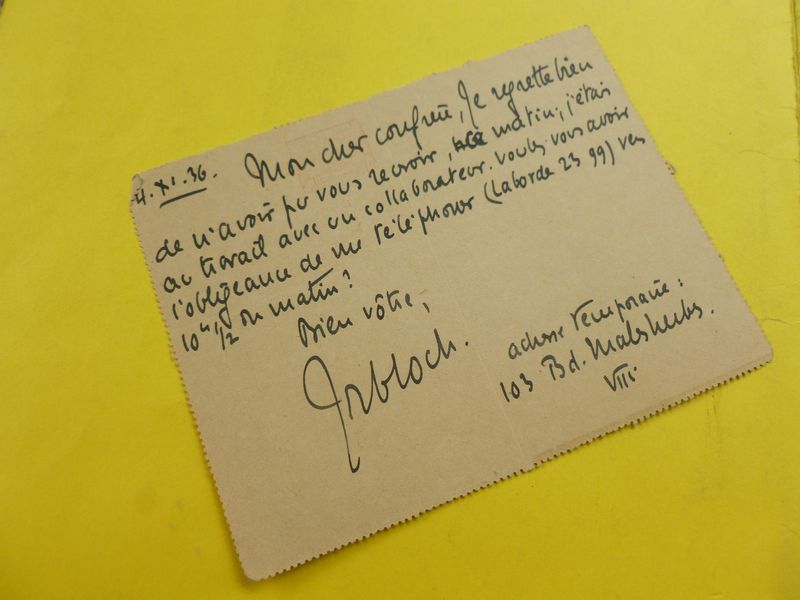 4.XI.36. Mon cher confrère, Je regrette bien
de n'avoir pu vous recevoir, ce matin; j'étais
au travail avec un collaborateur. Voulez vous avoir
l'obligeance de me téléphoner (Laborde 23 99) vers
10h 1/2 un matin?
Bien vôtre,
JRBloch.
adresse temporaire:
103 Bd. Malesherbes.
VIII